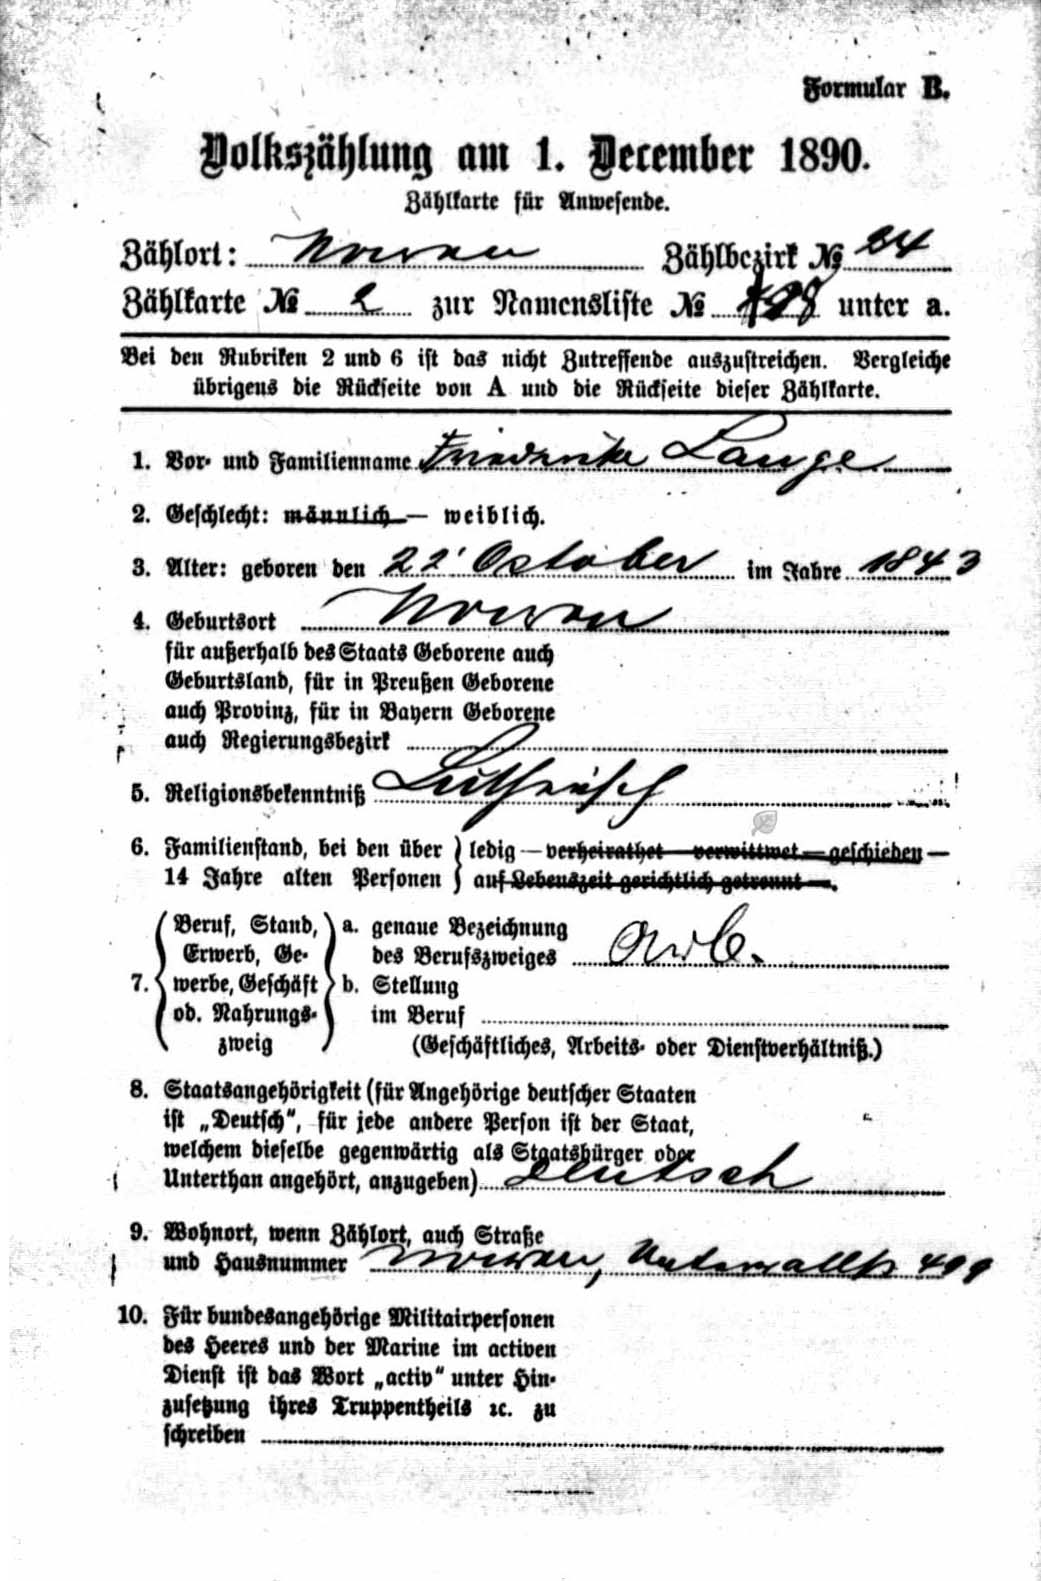 Formular B.
Volkszählung am 1. December 1890.
Zählkarte für Anwesende.
Zählort: Waren Zählbezirk № 24
Zählkarte № 2 zur Namensliste № unter a.
Bei den Rubriken 2 und 6 ist das nicht Zutreffende auszustreichen. Vergleiche
übrigens die Rückseite von A und die Rückseite dieser Zählkarte.
1. Vor- und Familienname Friederike Lange
2. Geschlecht: männlich — weiblich.
3. Alter: geboren den 22' October im Jahre 1843
4. Geburtsort Waren
für außerhalb des Staats Geborene auch
Geburtsland, für in Preußen Geborene
auch Provinz, für in Bayern Geborene
auch Regierungsbezirk
5. Religionsbekenntniß Lutherisch
6. Familienstand, bei den über } ledig — verheirathet — verwittwet — geschieden —
14 Jahre alten Personen } auf Lebenszeit gerichtlich getrennt —.
Beruf, Stand, a. genaue Bezeichnung
Erwerb, Ge- des Berufszweiges Arb.
7. werbe, Geschäft b. Stellung
od. Nahrungs- im Beruf
zweig (Geschäftliches, Arbeits- oder Dienstverhältniß.)
8. Staatsangehörigkeit (für Angehörige deutscher Staaten
ist „Deutsch“, für jede andere Person ist der Staat,
welchem dieselbe gegenwärtig als Staatsbürger oder
Unterthan angehört, anzugeben) Deutsch
9. Wohnort, wenn Zählort, auch Straße
und Hausnummer Waren, 499
10. Für bundesangehörige Militairpersonen
des Heeres und der Marine im activen
Dienst ist das Wort „activ“ unter Hin-
zusetzung ihres Truppentheils ꝛc. zu
schreiben